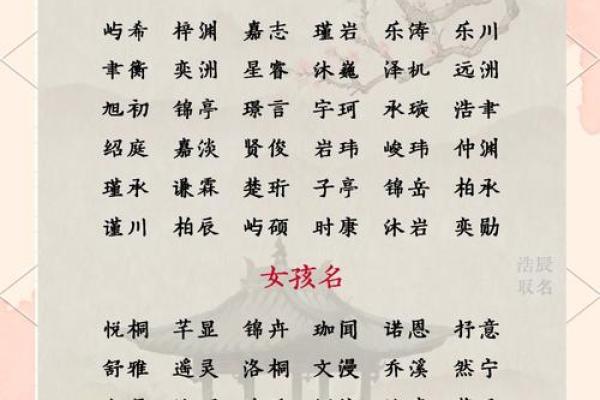 屿希 梓渊 嘉志 瑾岩 乐涛 乐川
聿衡 奕洲 星睿 沐巍 泽机 远洲
旭初 锦亭 璟言 宇珂 承璇 浩聿
绍庭 嘉淡 贤俊 岩玮 峻玮 仲渊
瑾承 谦霖 楚珩 子亭 锦岳 柏承
谨川 柏辰 屿硕 时康 沐岩 奕勋
女孩名
浩辰
取名
悦桐 芊显 锦卉 珈闻 诺恩 抒意
舒雅 遥灵 洛桐 文漫 乔溪 然宁